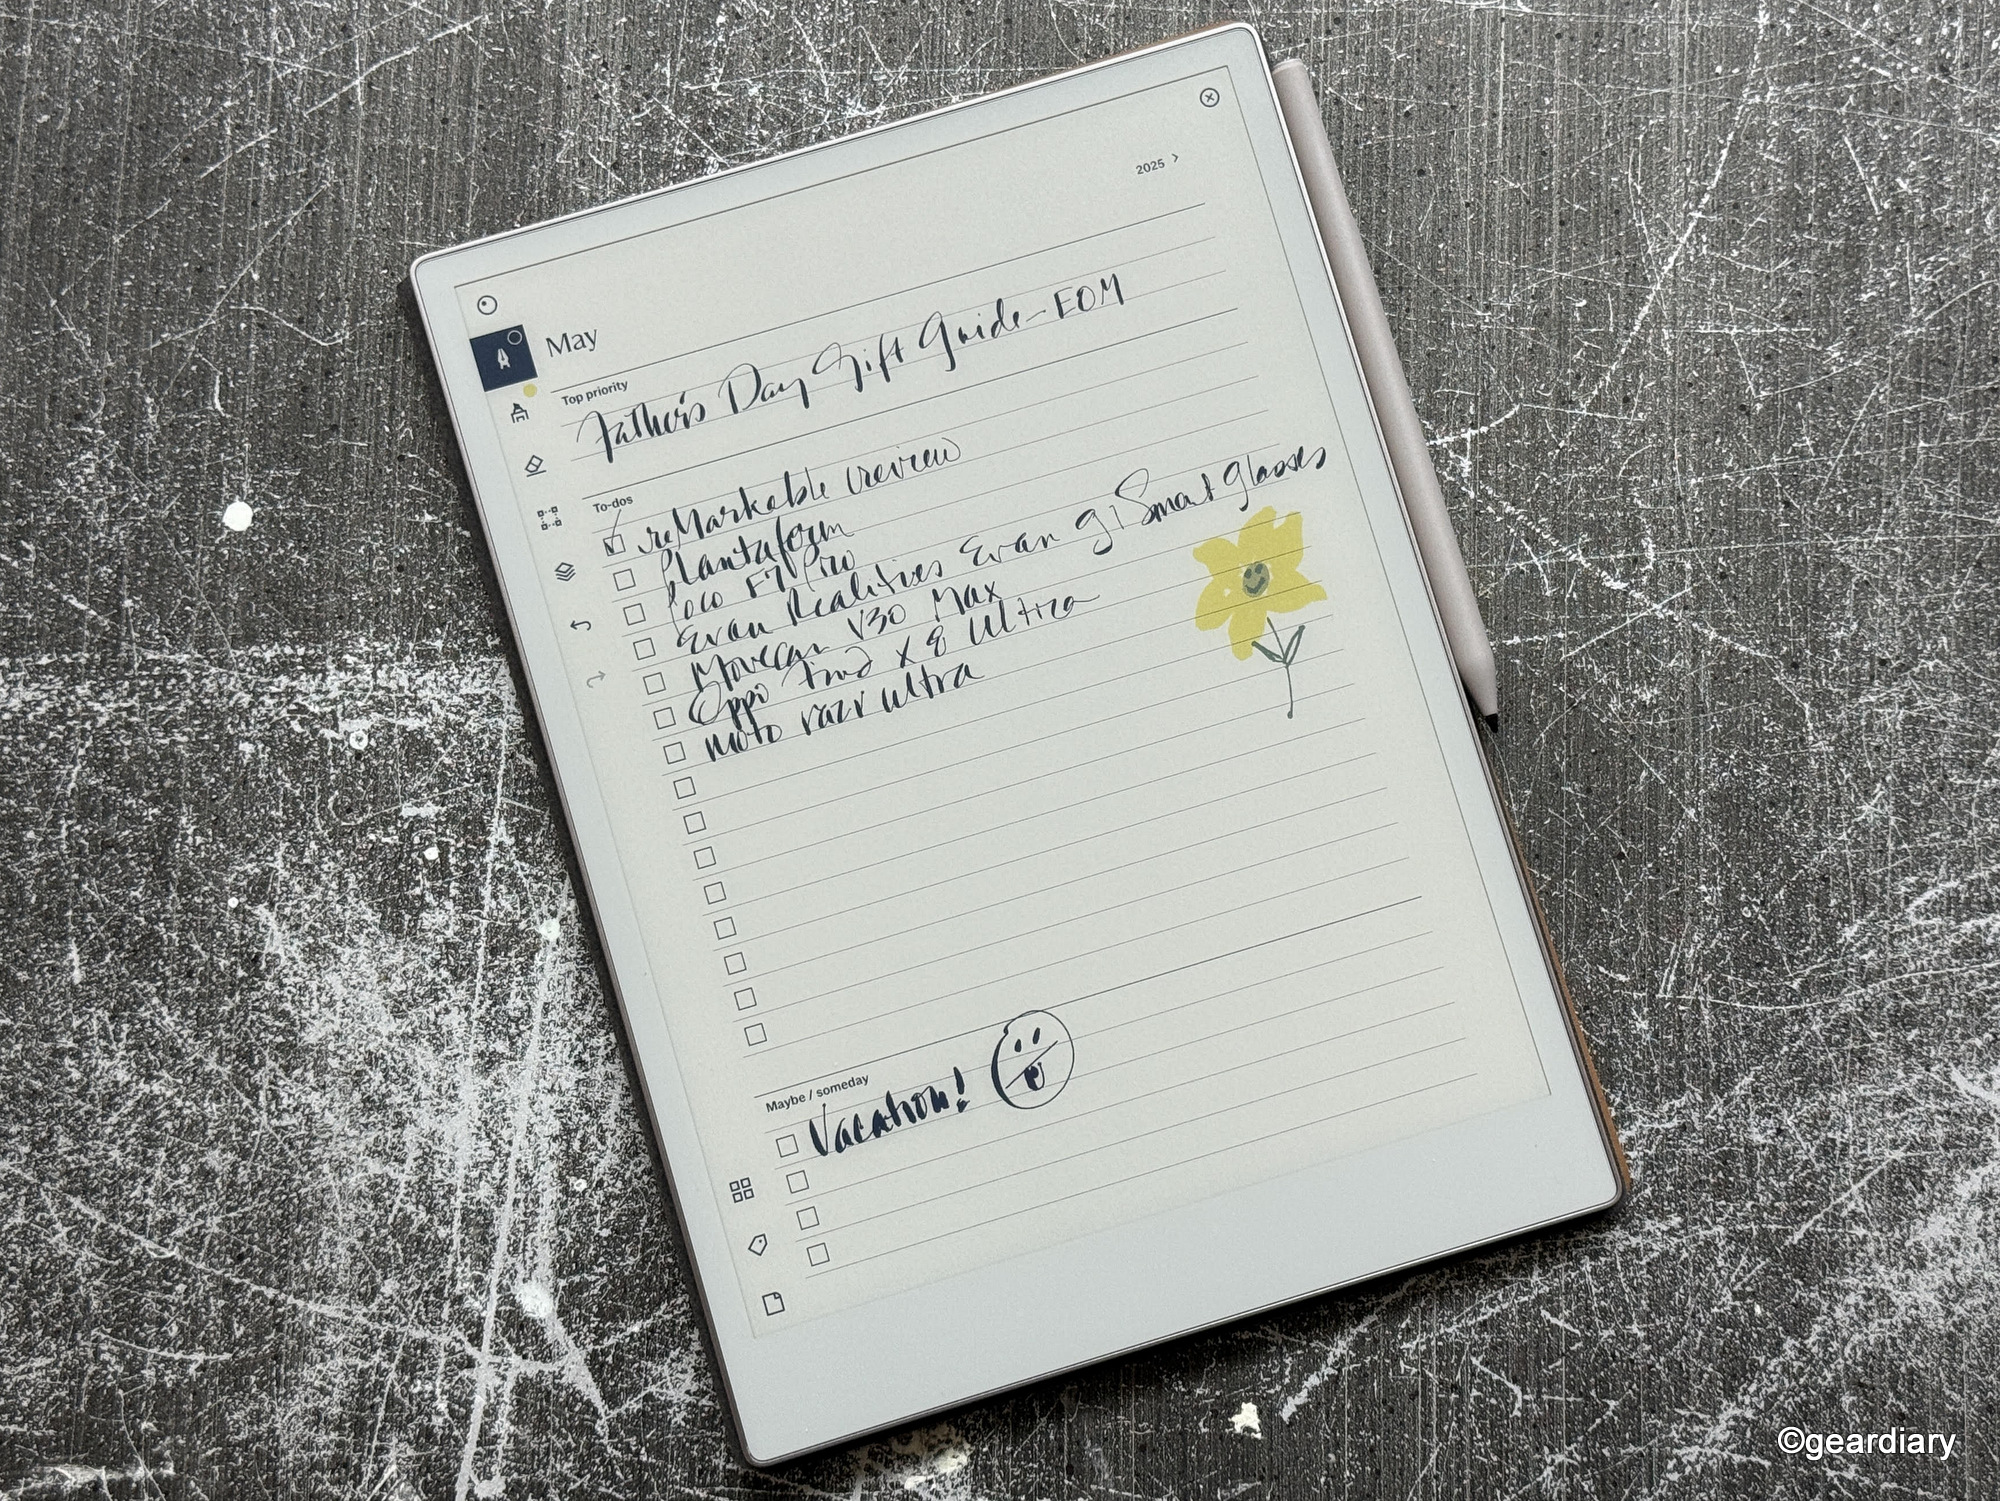 2025 >
May
Top priority
Father's Day Gift Guide - EOM
To-dos
reMarkable review
Plantaform
Poco F7 Pro
Evan Realities Evan G1 Smart Glasses
Movecan V30 Max
Oppo Find X 8 Ultra
moto razr ultra
Maybe / someday
Vacation!
©geardiary